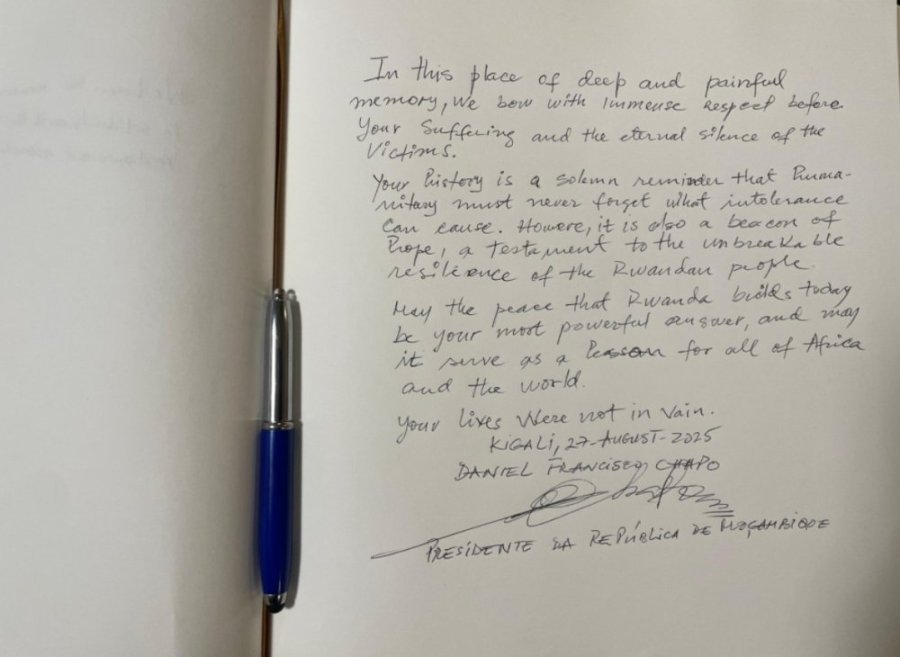 In this place of deep and painful
memory, we bow with immense respect before
your Suffering and the eternal silence of the
Victims.
Your history is a solemn reminder that huma-
nitary must never forget what intolerance
can cause. Howere, it is also a beacon of
hope, a testament to the unbreakable
resilience of the Rwandan people.
May the peace that Rwanda builds today
be your most powerful answer, and may
it serve as a lesson for all of Africa
and the world.
Your lives were not in vain.
KIGALI, 27-AUGUST-2025
DANIEL FRANCISCO CHAPO
PRESIDENTE DA REPÚBLICA DE MOÇAMBIQUE